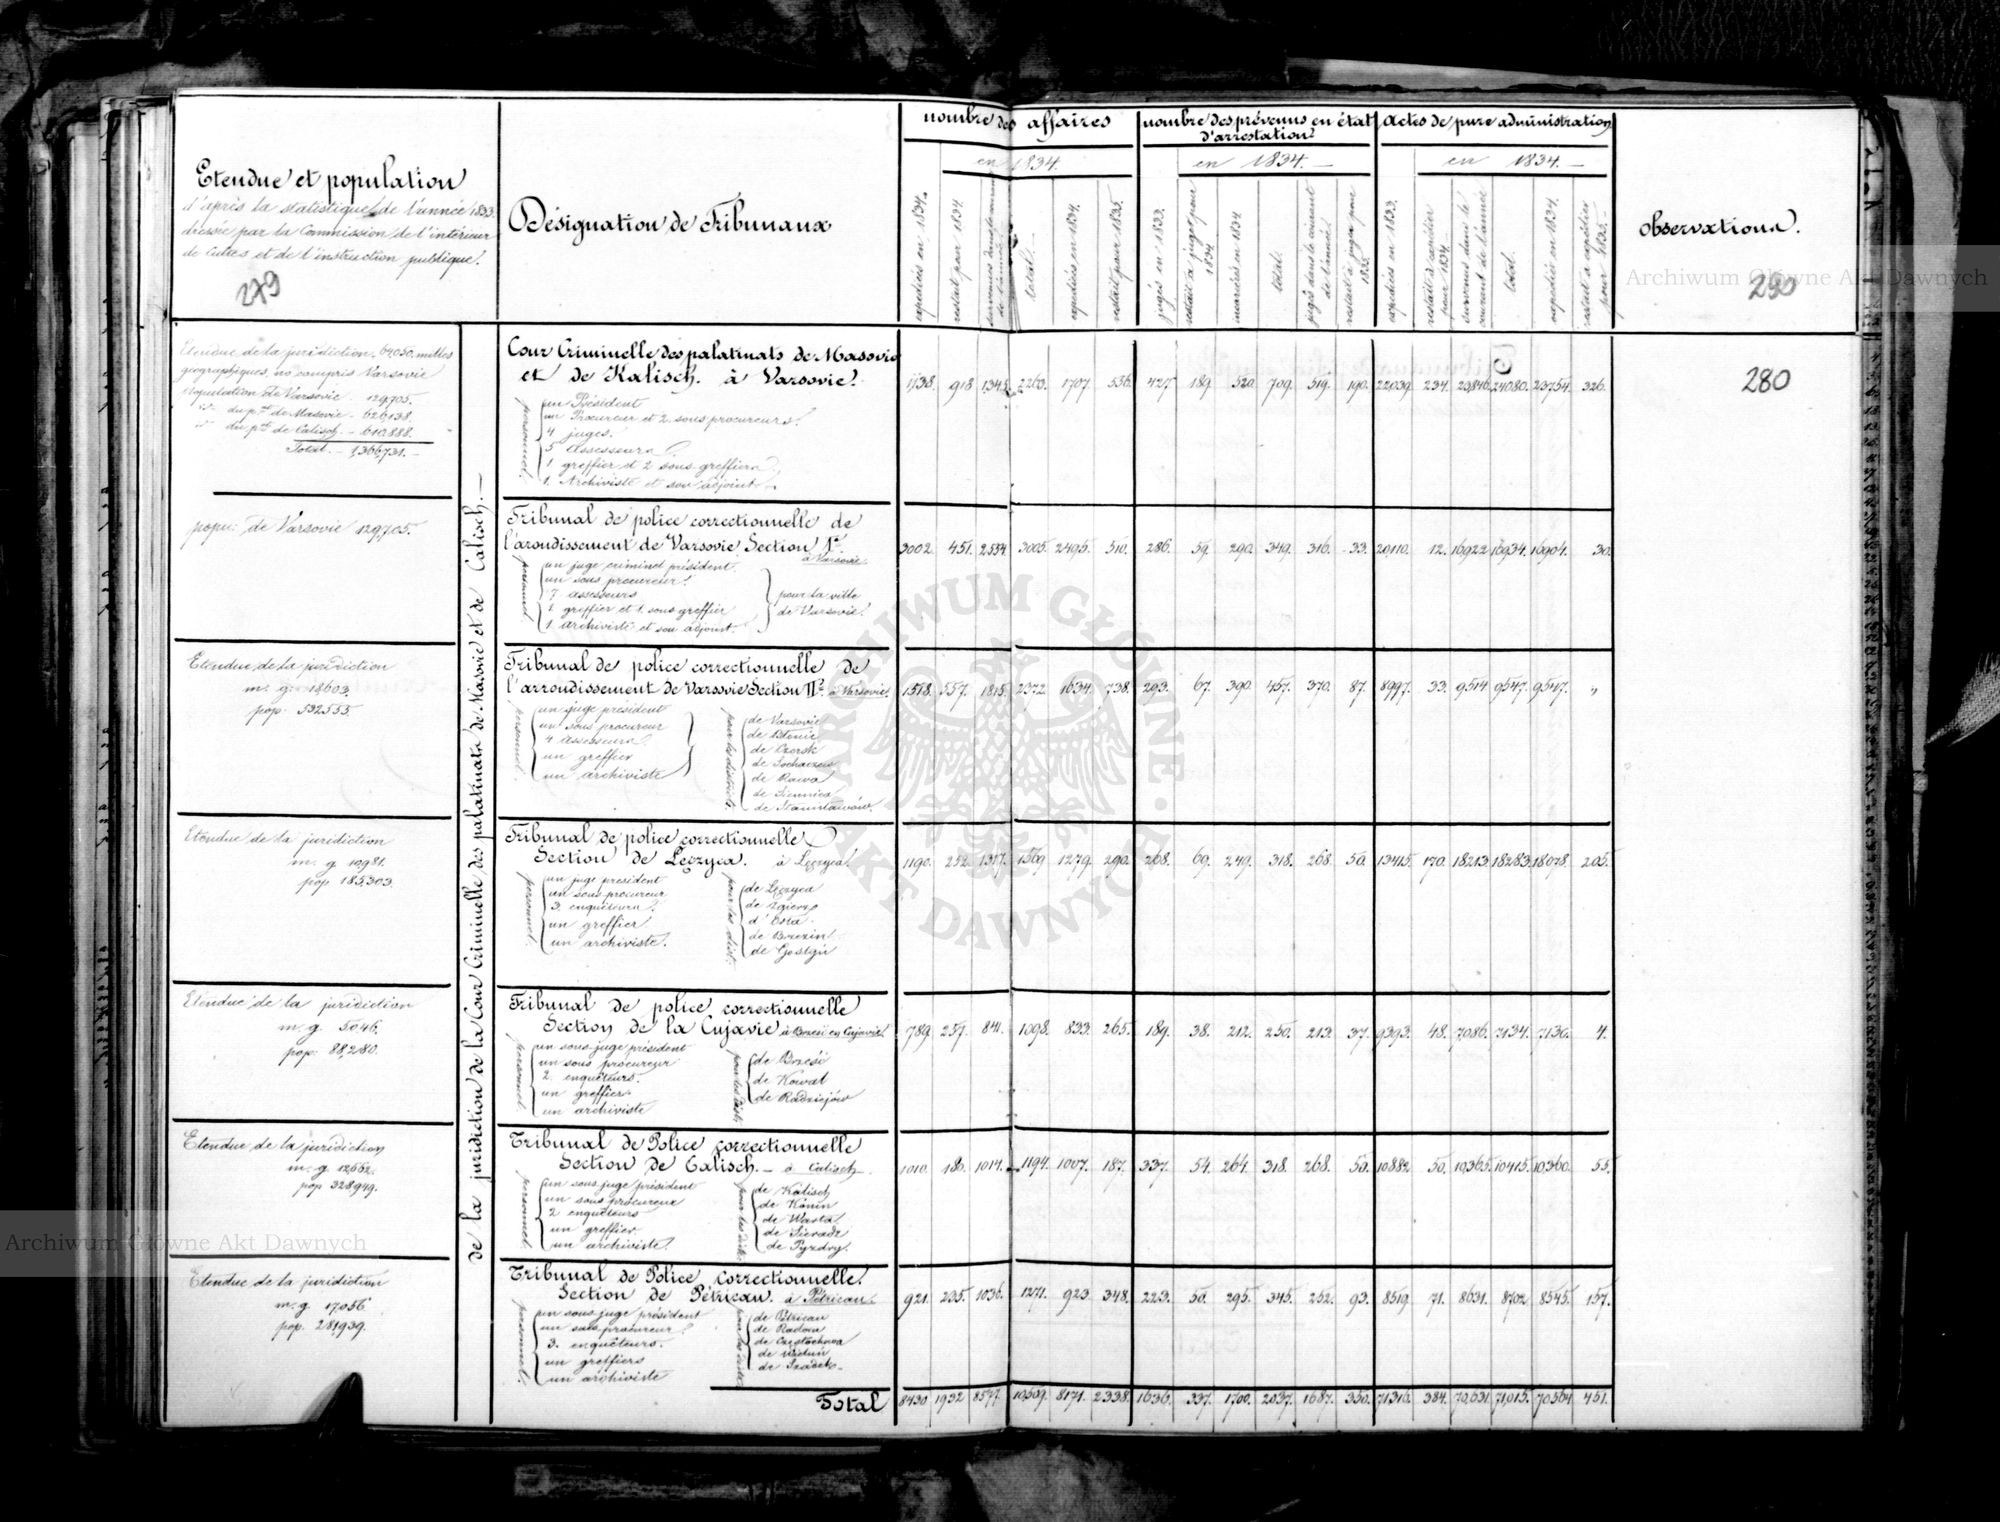 Etendue et population
d'après la statistique de l'année 1833.
dressée par la Commission de l'intérieur
de Cultes et de l'instruction publique.
279
Désignation de Tribunaux
nombre des affaires
en 1834.
expediées en 1834.
restait pour 1834.
total.
expediées en 1834.
restait pour 1835.
nombre des prévenus en état
d'arrestation
en 1834.
jugés en 1833.
restait a juger pour 1834
incarcérés en 1834
total.
jugés dans le courant de l'année.
restait à juger pour 1835.
Actes de pure administration
en 1834.
expediés en 1833.
restait à expédier pour 1834
survenus dans le courant de l'année
total.
expediés en 1834.
restait a expédier pour 1835.
observations.
290
280
Archiwum Główne Akt Dawnych
de la juridiction de la Cour Criminelle des palatinats de Masovie et de Calisch.
Etendue de la juridiction 64050. milles
géographiques, no compris Varsovie
Population de Varsovie 129,705.
du p. de Masovie - 626,138.
du p. de Calisch. - 610,888.
Total. - 1,366,731.
Cour Criminelle des palatinats de Masovie
et de Kalisch. à Varsovie.
personnel.
un Président
un Procureur et 2 sous procureurs.
4 juges.
5 assesseurs.
1 greffier et 2 sous greffiers
1. Archiviste et son adjoint
1138. 918. 1345. 2263. 1707. 556. 427. 189. 520. 709. 519. 190. 22039. 234. 23846. 24080. 23754. 326.
popu: de Varsovie 129,705.
Tribunal de police correctionnelle de
l'arondissement de Varsovie Section I
à Varsovie.
personnel
un juge criminel président.
un sous procureur.
7. assesseurs
1. greffier et 1. sous greffier
1 archiviste et son adjoint.
pour la ville
de Varsovie.
3002. 451. 2554. 3005. 2495. 510. 286. 59. 290. 349. 316. 33. 20,110. 12. 16922. 16934. 16904. 30.
Etendue de la juridiction
m. g. 18603.
pop. 532555.
Tribunal de police correctionnelle de
l'arrondissement de Varsovie Section II à Varsovie.
personnel.
un juge président
un sous procureur
4 assesseurs.
un greffier
un archiviste
pour les districts
de Varsovie
de Blonie
de Czersk
de Sochaczew
de Rawa
de Siennica
de Stanisławów.
1518. 557. 1815. 2372. 1634. 738. 293. 67. 390. 457. 370. 87. 8997. 33. 9514. 9547. 9547. "
Etendue de la juridiction
m. g 10981.
pop 185,303.
Tribunal de police correctionnelle
Section de Łęczyca. à Łęczyca.
personnel.
un juge president
un sous procureur
3. enquêteurs.
un greffier
un archiviste.
pour les dist:
de Łęczyca
de Zgierz
d'Orła
de Brezin
de Gostyń
1190. 252. 1317. 1569. 1279. 290. 268. 69. 249. 318. 268. 50. 13415. 170. 18213. 18283. 18078. 205.
Etendue de la juridiction
m. g. 5046.
pop: 88,280.
Tribunal de police correctionnelle
Section de la Cujavie à Brzesć en Cujavie
personnel
un sous-juge président
un sous procureur
2. enquêteurs.
un greffier
un archiviste
de Brzesć
de Kowal
de Radziejów
789. 257. 841. 1098. 833. 265. 189. 38. 212. 250. 213. 37. 9393. 48. 7086. 7134. 7130. 4.
Etendue de la juridiction
m. g. 12662.
pop 328949.
Tribunal de Police correctionnelle
Section de Calisch. - à Calisch
personnel
un sous-juge président
un sous procureur
2 enquêteurs
un greffier
un archiviste.
de Kalisch
de Konin
de Warta
de Sieradz
de Pyzdry.
1010. 180. 1014. 1194. 1007. 187. 337. 54. 264. 318. 268. 50. 10882. 50. 10365. 10415. 10360. 55.
Etendue de la juridiction
m. g. 17,056.
pop. 281,939.
Tribunal de Police correctionnelle.
Section de Pétricau. à Pétricau.
personnel
un sous juge président
un sous procureur
3. enquêteurs.
un greffiers
un archiviste
de Pétricau
de Radom
de Częstochowa
de Wieluń
de Szadek
921. 235. 1036. 1271. 923. 348. 223. 50. 295. 345. 252. 93. 8519. 71. 8631. 8702. 8545. 157.
Total 8430 1932 8577. 10,509. 8171. 2338. 1636. 337. 1700. 2037. 1687. 350. 71316. 384. 70,631. 71,015. 70564 451.
ARCHIWUM GŁÓWNE
AKT DAWNYCH
Archiwum Główne Akt Dawnych